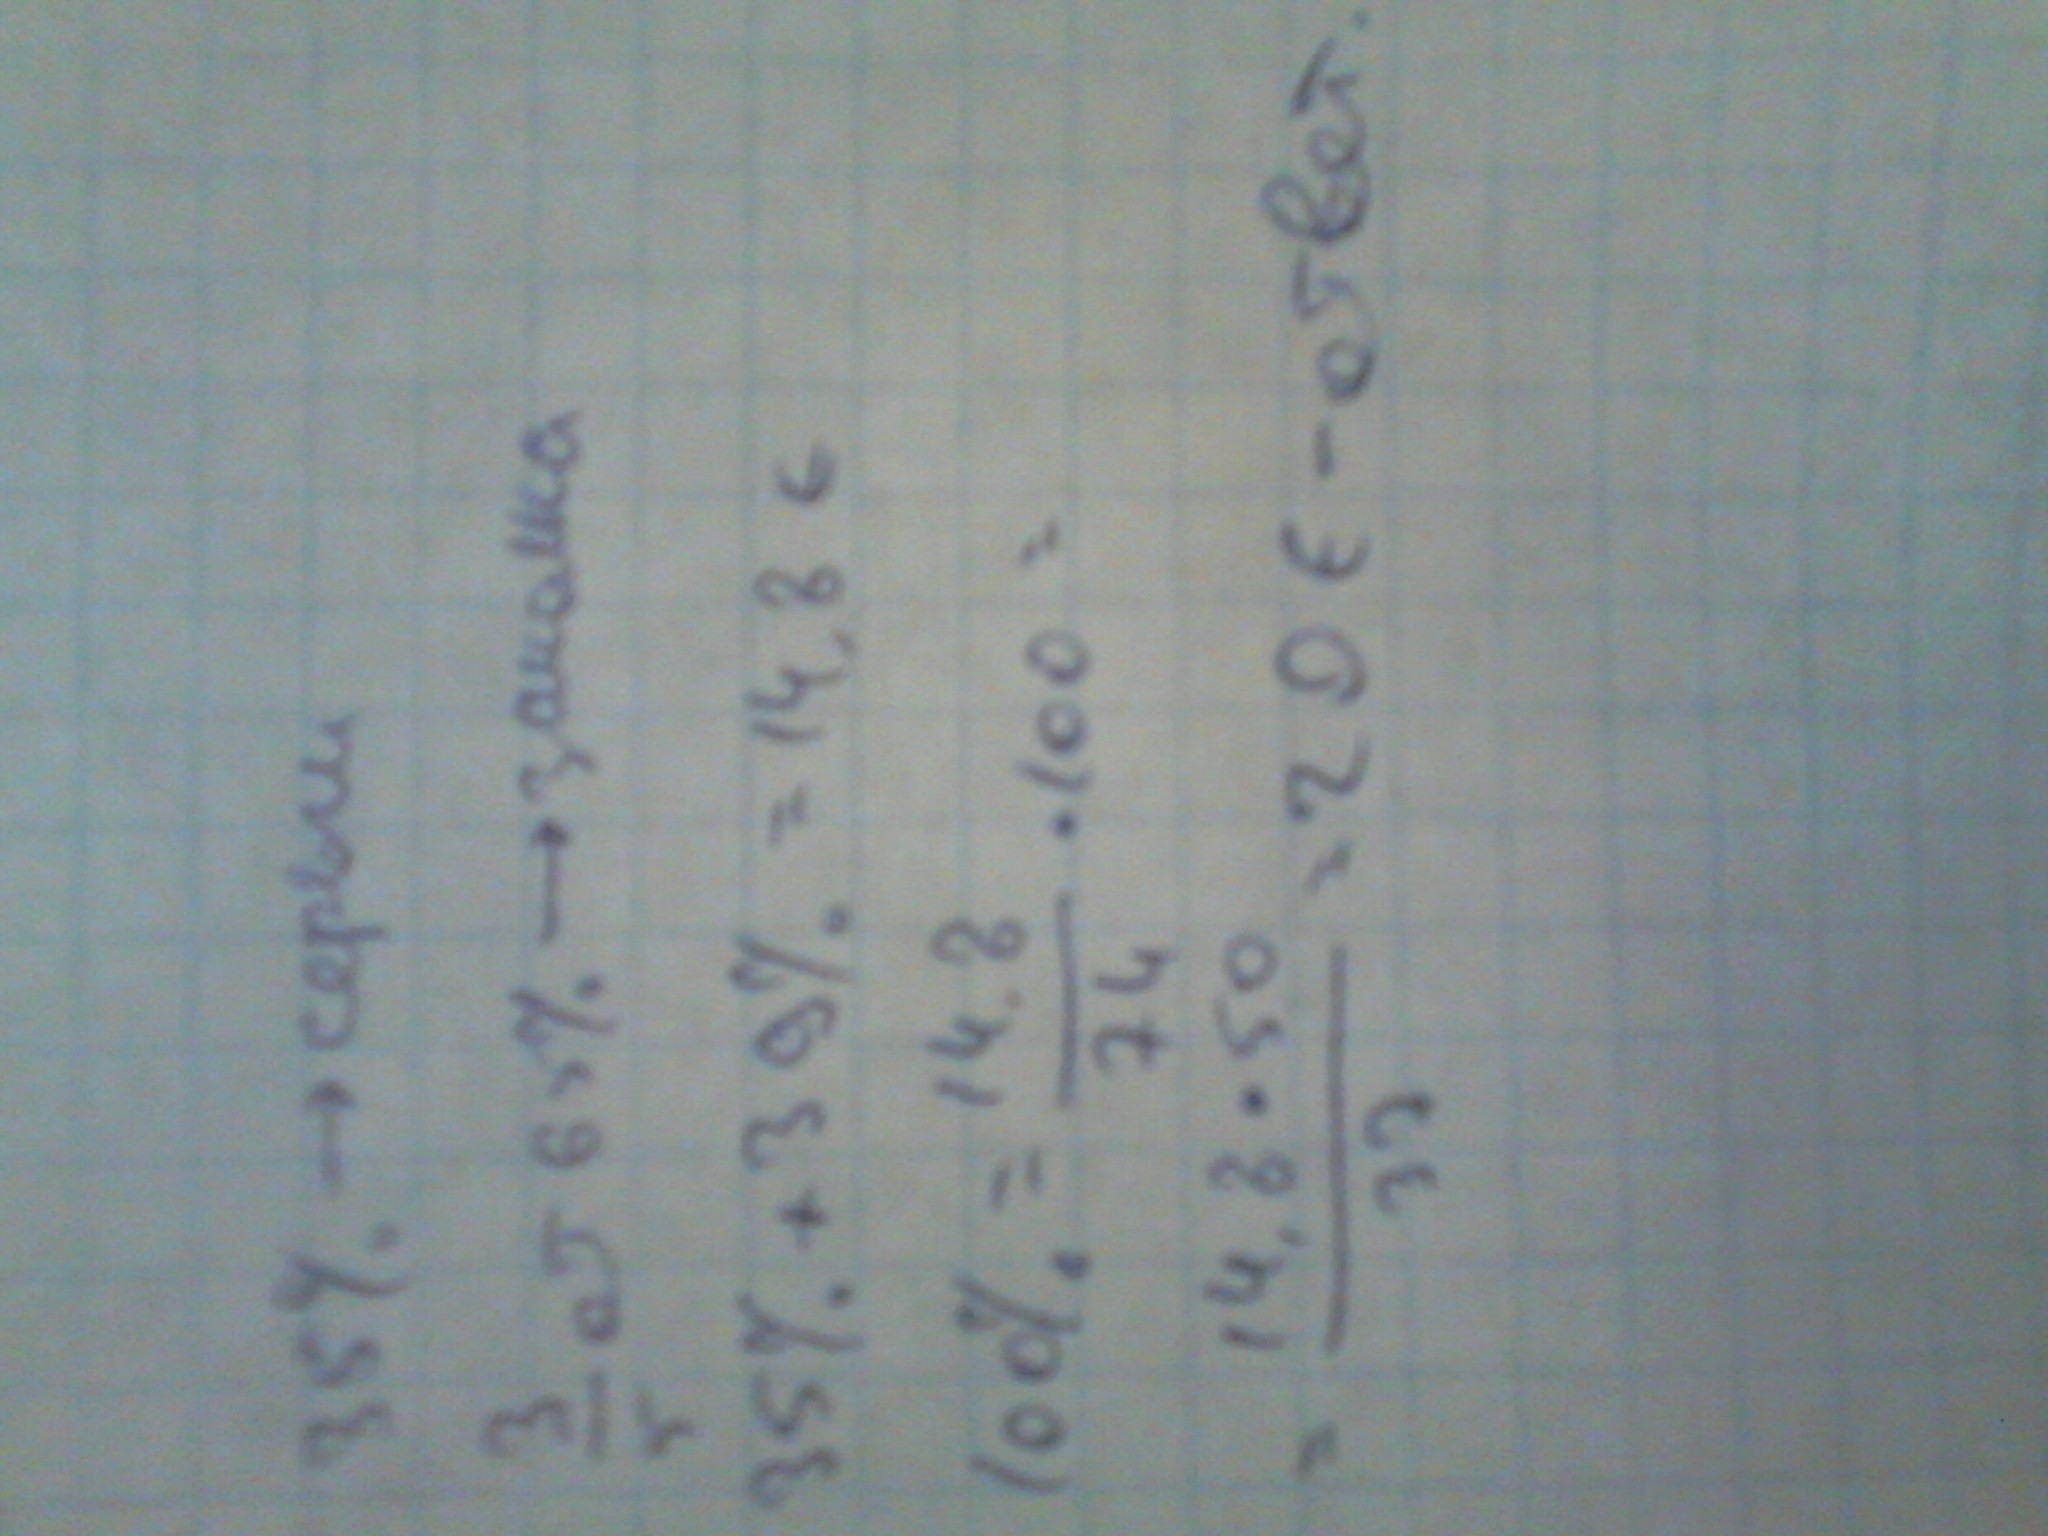 35% → серьги
3/5 от 65% → заколка
35% + 39% = 14,8 €
100% = 14,8/74 · 100 =
= 14,8 · 50/37 = 20 € - ответ.